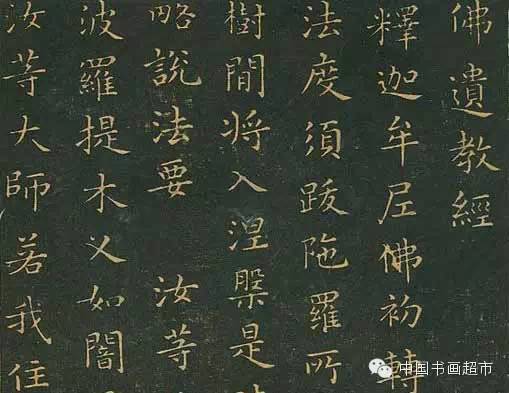 佛遺教經
釋迦牟尼佛初轉
法度須跋陁羅所
樹間将入涅槃是
略說法要 汝等
波羅提木叉如闇
汝等大師若我住
中国书画超市